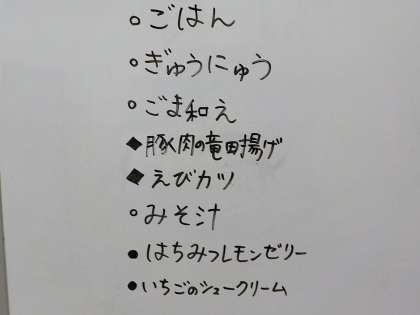 ○ごはん
○ぎゅうにゅう
○ごま和え
◆豚肉の竜田揚げ
◆えびカツ
○みそ汁
●はちみつレモンゼリー
●いちごのシュークリーム